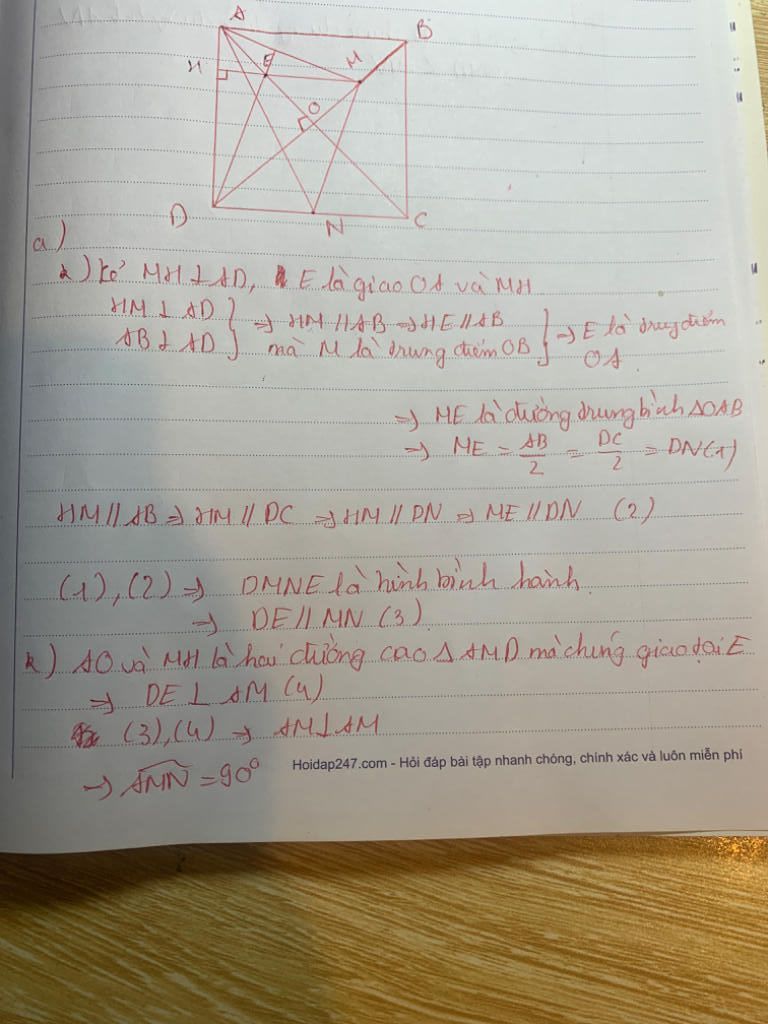 A
B
H
E
M
O
D
N
C
a)
*) Kẻ MH ⊥ AD, E là giao OA và MH
HM ⊥ AD } ⇒ HM // AB ⇒ HE // AB } ⇒ E là trung điểm
AB ⊥ AD } mà M là trung điểm OB } OA
⇒ ME là đường trung bình ΔOAB
⇒ ME = AB/2 = DC/2 = DN (1)
HM // AB ⇒ HM // DC ⇒ HM // DN ⇒ ME // DN (2)
(1), (2) ⇒ DMNE là hình bình hành.
⇒ DE // MN (3)
*) AO và MH là hai đường cao Δ AMD mà chúng giao tại E
⇒ DE ⊥ AM (4)
(3), (4) ⇒ AM ⊥ AM
⇒ AMN = 90°
Hoidap247.com - Hỏi đáp bài tập nhanh chóng, chính xác và luôn miễn phí